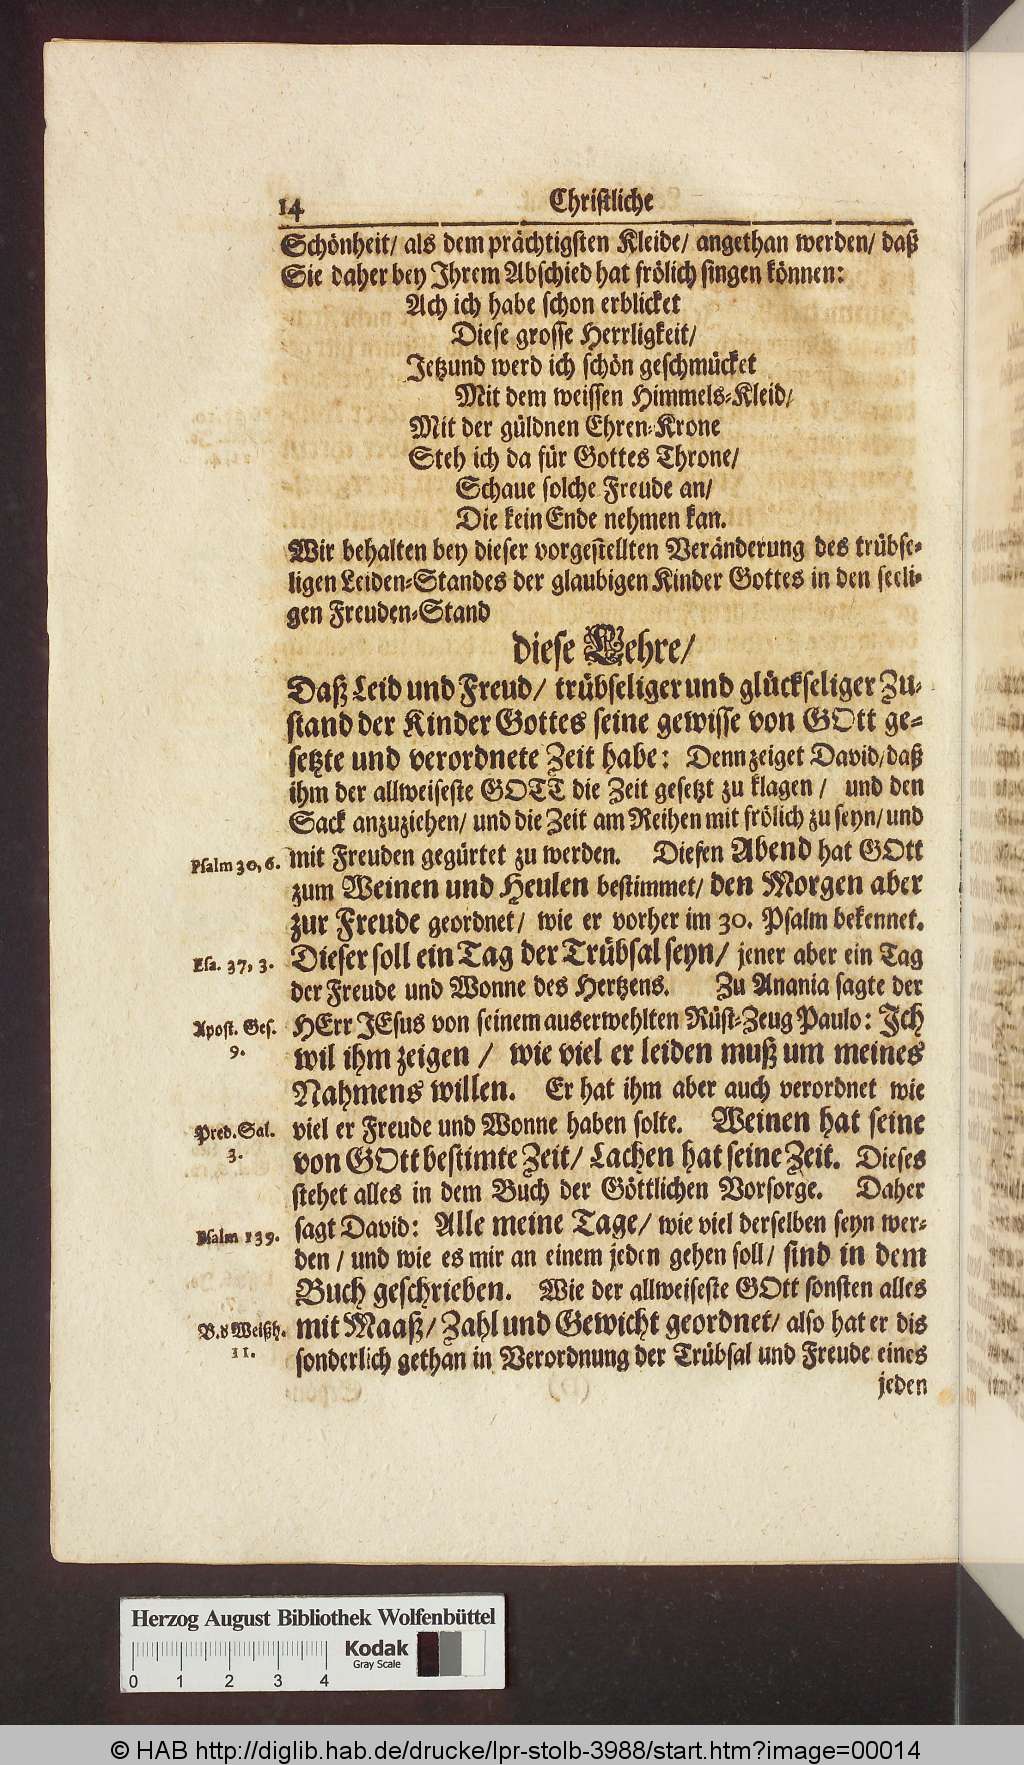 14 Christliche
Schönheit/ als dem prächtigsten Kleide/ angethan werden/ daß
Sie daher bey Ihrem Abschied hat frölich singen können:
Ach ich habe schon erblicket
Diese grosse Herrligkeit/
Jetzund werd ich schön geschmücket
Mit dem weissen Himmels-Kleid/
Mit der güldnen Ehren-Krone
Steh ich da für Gottes Throne/
Schaue solche Freude an/
Die kein Ende nehmen kan.
Wir behalten bey dieser vorgestellten Veränderung des trübse-
ligen Leiden-Standes der glaubigen Kinder Gottes in den seeli-
gen Freuden-Stand
diese Lehre/
Daß Leid und Freud/ trübseliger und glückseliger Zu-
stand der Kinder Gottes seine gewisse von GOtt ge-
setzte und verordnete Zeit habe: Denn zeiget David/ daß
ihm der allweiseste GOTT die Zeit gesetzt zu klagen / und den
Sack anzuziehen/ und die Zeit am Reihen mit frölich zu seyn/ und
Psalm 30, 6. mit Freuden gegürtet zu werden. Diesen Abend hat GOtt
zum Weinen und Heulen bestimmet/ den Morgen aber
zur Freude geordnet/ wie er vorher im 30. Psalm bekennet.
Esa. 37, 3. Dieser soll ein Tag der Trübsal seyn/ jener aber ein Tag
der Freude und Wonne des Hertzens. Zu Anania sagte der
Apost. Ges. HErr JEsus von seinem auserwehlten Rüst-Zeug Paulo: Ich
9. wil ihm zeigen / wie viel er leiden muß um meines
Nahmens willen. Er hat ihm aber auch verordnet wie
Pred. Sal. viel er Freude und Wonne haben solte. Weinen hat seine
3. von GOtt bestimte Zeit/ Lachen hat seine Zeit. Dieses
stehet alles in dem Buch der Göttlichen Vorsorge. Daher
Psalm 139. sagt David: Alle meine Tage/ wie viel derselben seyn wer-
den / und wie es mir an einem jeden gehen soll/ sind in dem
Buch geschrieben. Wie der allweiseste GOtt sonsten alles
B. d Weißh. mit Maaß/ Zahl und Gewicht geordnet/ also hat er dis
11. sonderlich gethan in Verordnung der Trübsal und Freude eines
jeden
Herzog August Bibliothek Wolfenbüttel
Kodak
Gray Scale
0 1 2 3 4
© HAB http://diglib.hab.de/drucke/lpr-stolb-3988/start.htm?image=00014